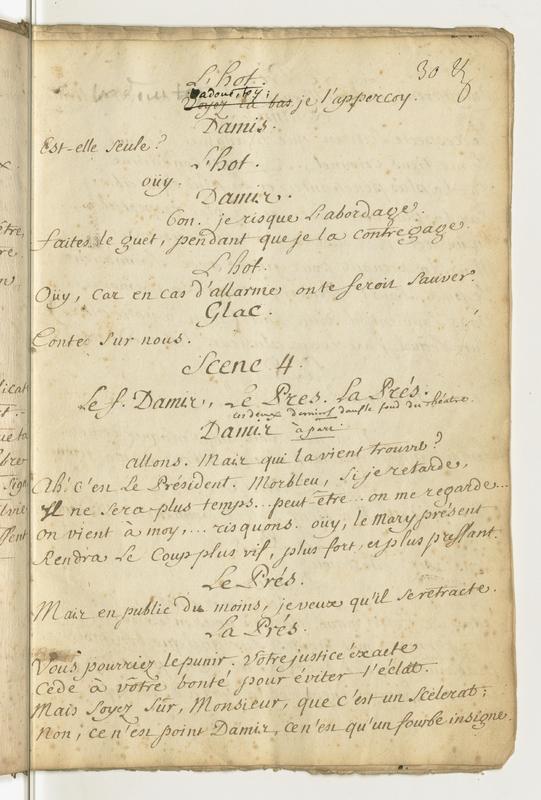 30
L'hot.
Voyez la bas je l'apperçoy.
Damis.
Est-elle seule?
L'hot.
oüy.
Damis.
Bon. je risque L'abordage.
faites le guet, pendant que je la contregage.
L'hot.
Oüy, Car en cas d'allarme on te feroit sauver.
Glac.
Contez sur nous.
Scene 4.
Le f. Damis, Le Pres. La Prés.
ces deux derniers dans le fond du théatre.
Damis à part.
allons. Mais qui la vient trouver?
Ah! c'en Le Président. Morbleu, si je retarde,
Il ne sera plus temps... peut être... on me regarde...
on vient à moy,... risquons. oüy, le Mary présent
Rendra Le Coup plus vif, plus fort, et plus pressant.
Le Prés.
Mais en public du moins, je veux qu'il se rétracte.
La Prés.
Vous pourriez le punir. Vôtre justice éxacte
Cede à vôtre bonté pour éviter l'éclat.
Mais soyez sûr, Monsieur, que c'est un scélerat;
Non, ce n'en point Damis, ce n'en qu'un fourbe insigne.